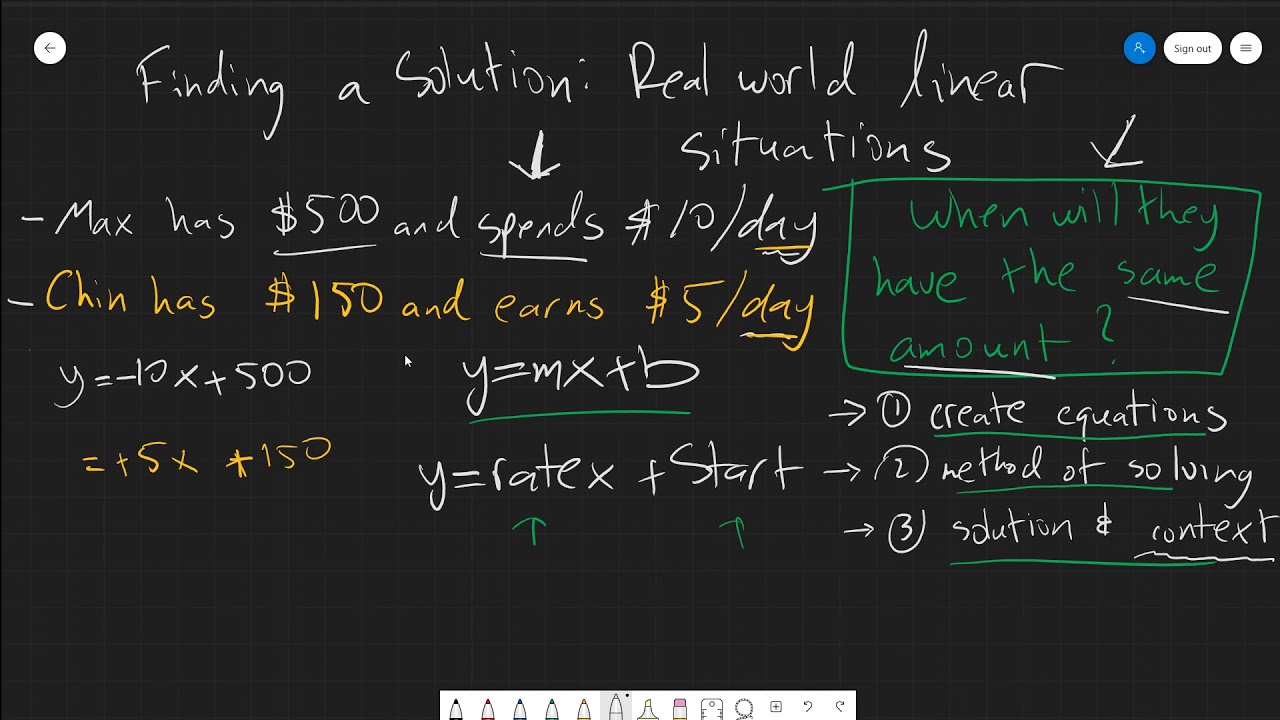 Finding a Solution: Real world linear
situations
Sign out
- Max has $500 and spends $10/day
- Chin has $150 and earns $5/day
When will they
have the same
amount?
y=-10x+500
=+5x +150
y=mx+b
y=ratex + Start
→ ① create equations
→ ② method of solving
→ ③ solution & context